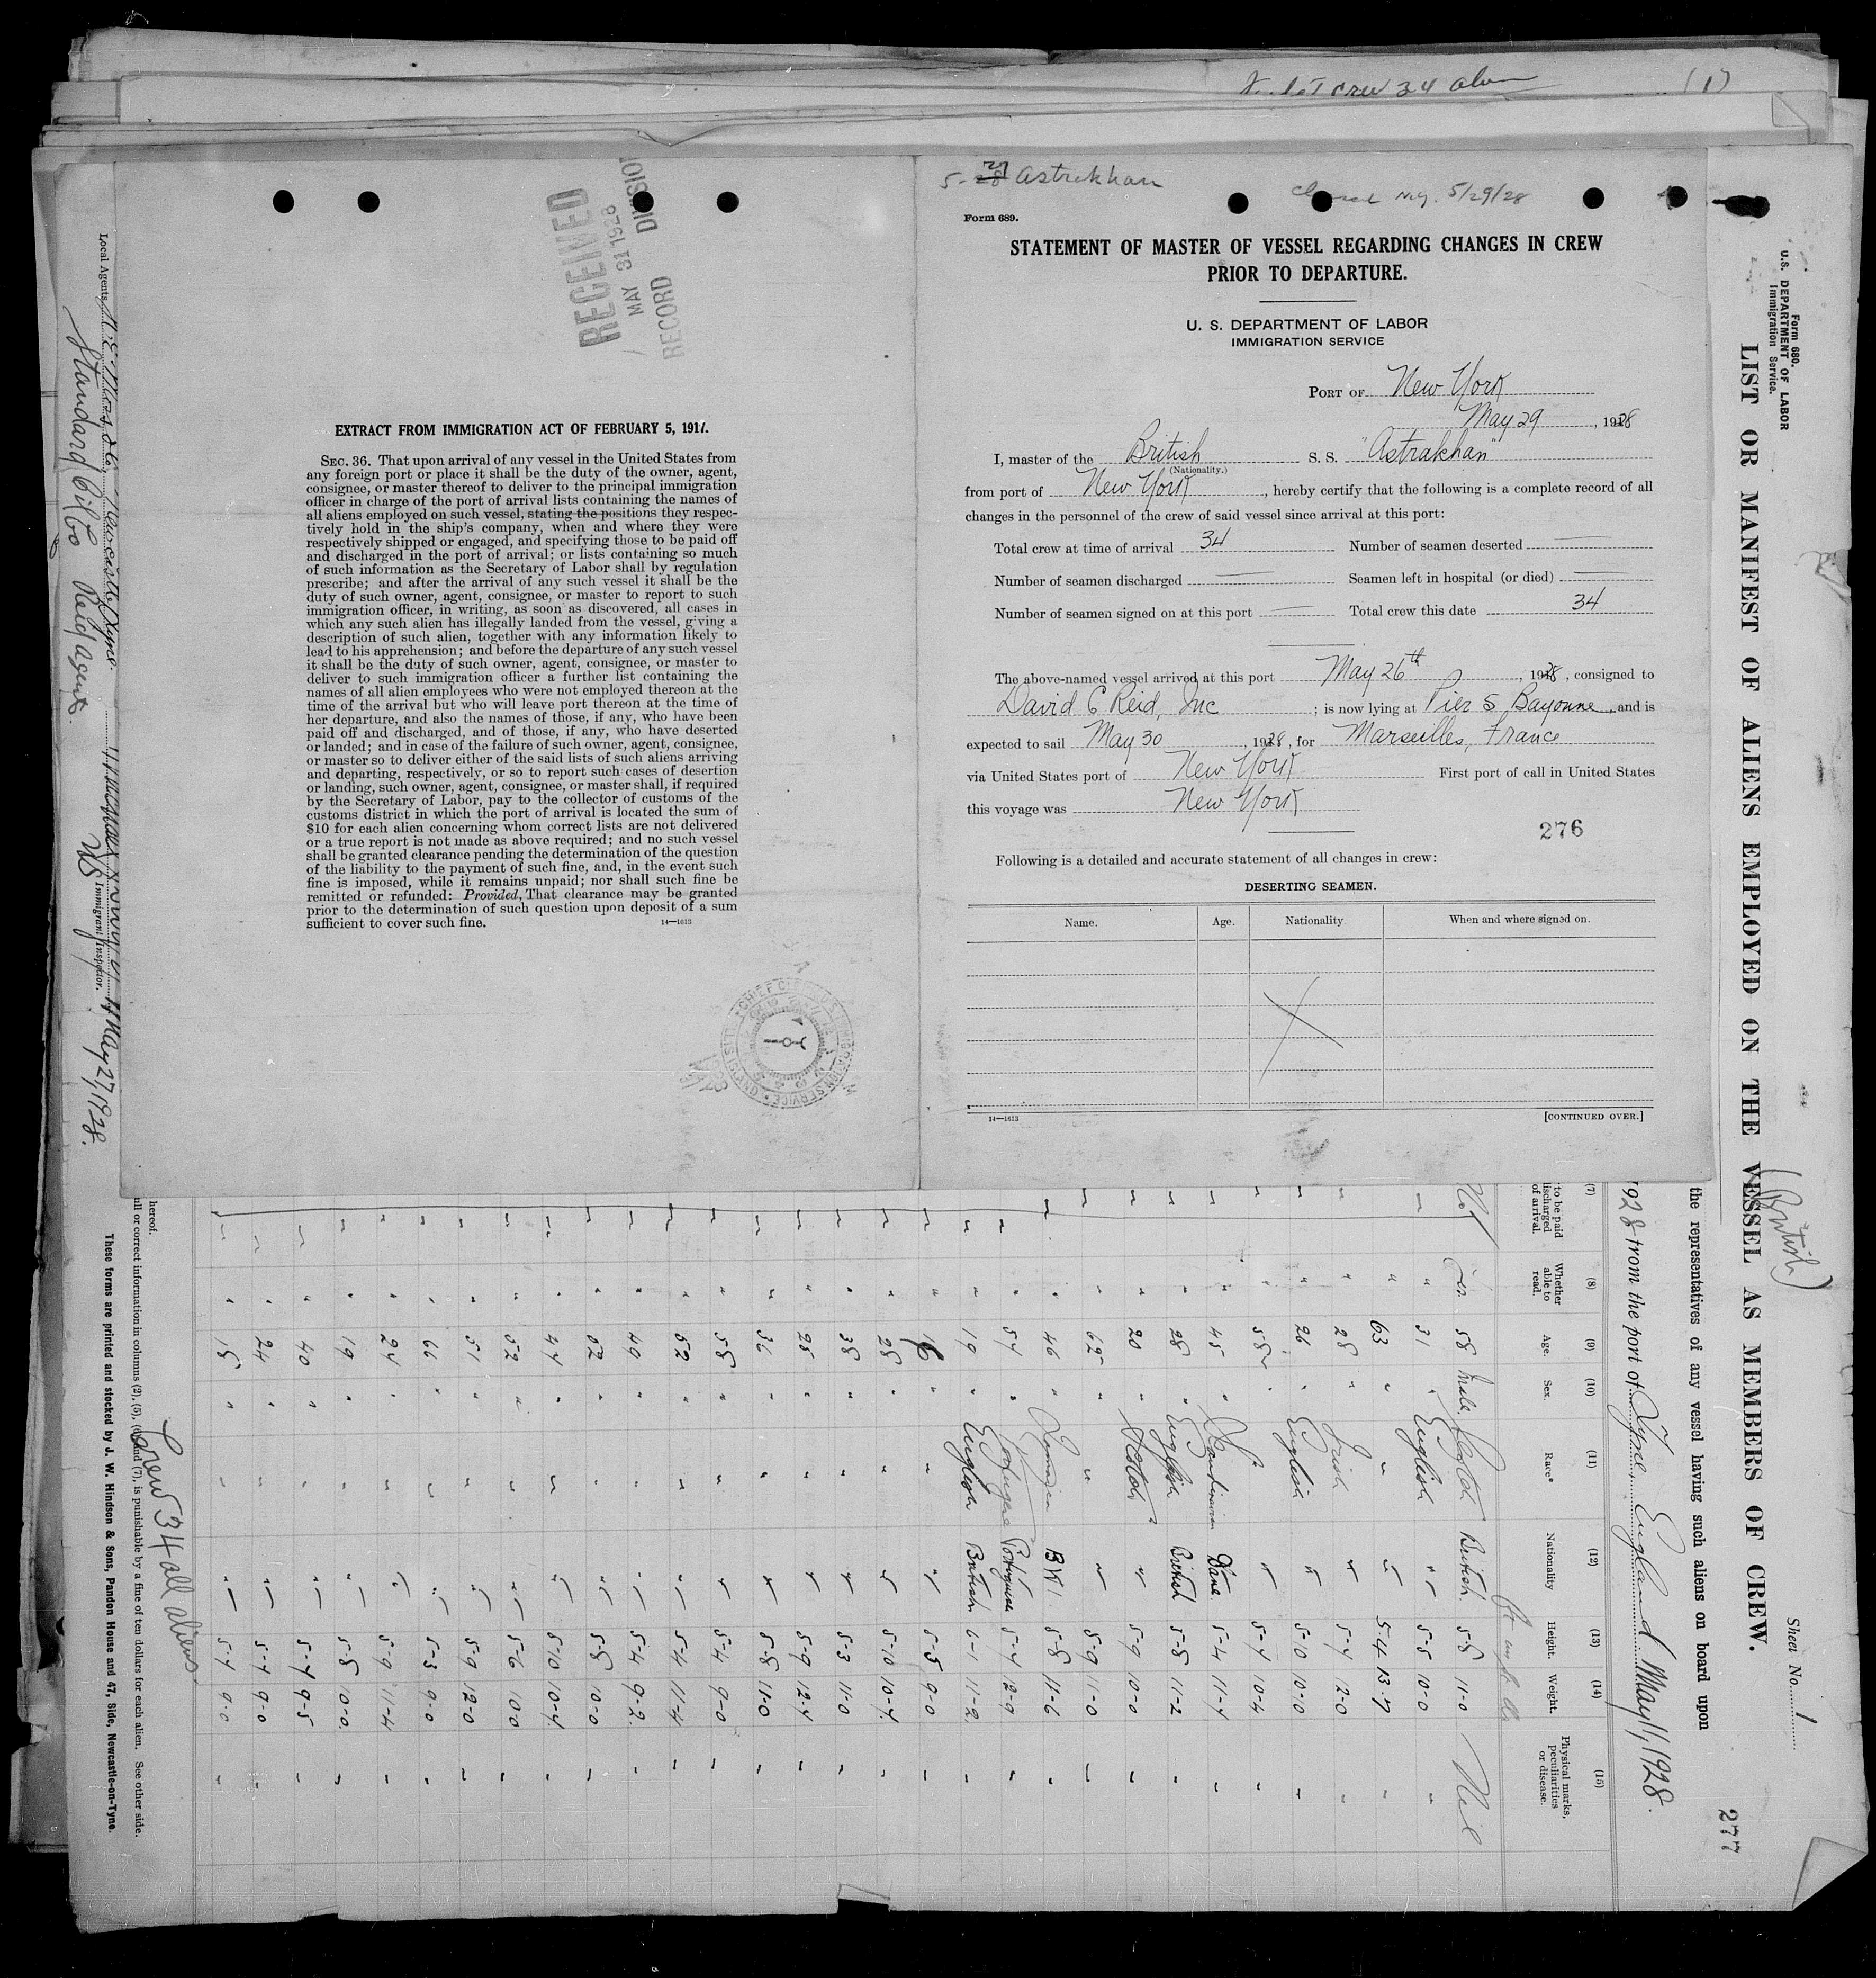 crew 34
(1)
5-27 Astrakhan
5/29/28
Form 689.
STATEMENT OF MASTER OF VESSEL REGARDING CHANGES IN CREW
PRIOR TO DEPARTURE.
U. S. DEPARTMENT OF LABOR
IMMIGRATION SERVICE
PORT OF New York
May 29, 1928
I, master of the British S. S. "Astrakhan"
(Nationality.)
from port of New York, hereby certify that the following is a complete record of all
changes in the personnel of the crew of said vessel since arrival at this port:
Total crew at time of arrival 34 Number of seamen deserted —
Number of seamen discharged — Seamen left in hospital (or died) —
Number of seamen signed on at this port — Total crew this date 34
The above-named vessel arrived at this port May 26th, 1928, consigned to
David C Reid, Inc; is now lying at Pier 5 Bayonne and is
expected to sail May 30, 1928, for Marseilles, France
via United States port of New York First port of call in United States
this voyage was New York
276
Following is a detailed and accurate statement of all changes in crew:
DESERTING SEAMEN.
Name. Age. Nationality When and where signed on.
14—1613 [CONTINUED OVER.]
RECEIVED
MAY 31 1928
RECORD DIVISION
EXTRACT FROM IMMIGRATION ACT OF FEBRUARY 5, 1917.
SEC. 36. That upon arrival of any vessel in the United States from
any foreign port or place it shall be the duty of the owner, agent,
consignee, or master thereof to deliver to the principal immigration
officer in charge of the port of arrival lists containing the names of
all aliens employed on such vessel, stating the positions they respec-
tively hold in the ship's company, when and where they were
respectively shipped or engaged, and specifying those to be paid off
and discharged in the port of arrival; or lists containing so much
of such information as the Secretary of Labor shall by regulation
prescribe; and after the arrival of any such vessel it shall be the
duty of such owner, agent, consignee, or master to report to such
immigration officer, in writing, as soon as discovered, all cases in
which any such alien has illegally landed from the vessel, giving a
description of such alien, together with any information likely to
lead to his apprehension; and before the departure of any such vessel
it shall be the duty of such owner, agent, consignee, or master to
deliver to such immigration officer a further list containing the
names of all alien employees who were not employed thereon at the
time of the arrival but who will leave port thereon at the time of
her departure, and also the names of those, if any, who have been
paid off and discharged, and of those, if any, who have deserted
or landed; and in case of the failure of such owner, agent, consignee,
or master so to deliver either of the said lists of such aliens arriving
and departing, respectively, or so to report such cases of desertion
or landing, such owner, agent, consignee, or master shall, if required
by the Secretary of Labor, pay to the collector of customs of the
customs district in which the port of arrival is located the sum of
$10 for each alien concerning whom correct lists are not delivered
or a true report is not made as above required; and no such vessel
shall be granted clearance pending the determination of the question
of the liability to the payment of such fine, and, in the event such
fine is imposed, while it remains unpaid; nor shall such fine be
remitted or refunded: Provided, That clearance may be granted
prior to the determination of such question upon deposit of a sum
sufficient to cover such fine. 14—1613
Form 680.
U.S. DEPARTMENT OF LABOR
Immigration Service.
LIST OR MANIFEST OF ALIENS EMPLOYED ON THE VESSEL AS MEMBERS OF CREW.
(British)
Sheet No. 1
277
the representatives of any vessel having such aliens on board upon
1928 from the port of Tyne, England May 11, 1928.
(7) (8) (9) (10) (11) (12) (13) (14) (15)
to be paid discharged of arrival. Whether able to read. Age. Sex. Race* Nationality Height. Weight. Physical marks, peculiarities or disease.
Not Yes 58 Male Scotch British 5-8 11-0 Nil
31 " English " 5-5 10-0 "
63 " " " 5-4 13-7 "
28 " Irish " 5-7 12-0 "
26 " English " 5-10 10-0 "
58 " " " 5-7 10-4 "
45 " Scandinavian Dane 5-4 11-7 "
28 " English British 5-8 11-2 "
20 " Scotch " 5-9 10-0 "
62 " " " 5-9 11-0 "
46 " B W I 5-8 11-6 "
54 " Portuguese Portuguese 5-7 12-9 "
19 " English British 6-1 11-2 "
16 " " " 5-5 9-0 "
28 " " " 5-10 10-7 "
38 " " " 5-3 11-0 "
25 " " " 5-9 12-4 "
36 " " " 5-8 11-0 "
58 " " " 5-4 9-0 "
52 " " " 5-4 11-4 "
40 " " " 5-4 9-2 "
52 " " " 5-8 10-0 "
44 " " " 5-10 10-4 "
52 " " " 5-6 10-0 "
51 " " " 5-9 12-0 "
66 " " " 5-3 9-0 "
24 " " " 5-9 11-4 "
19 " " " 5-8 10-0 "
40 " " " 5-4 9-5 "
24 " " " 5-7 9-0 "
18 " " " 5-7 9-0 "
Crew 34 all aliens
hereof.
full or correct information in columns (2), (5), (6) and (7), is punishable by a fine of ten dollars for each alien. See other side.
These forms are printed and stocked by J. W. Hindson & Sons, Pandon House and 47, Side, Newcastle-on-Tyne.
Local Agents Newcastle/Tyne.
Standard Oil Co Reid Agent.
Immigrant Inspector.
May 27, 1928.